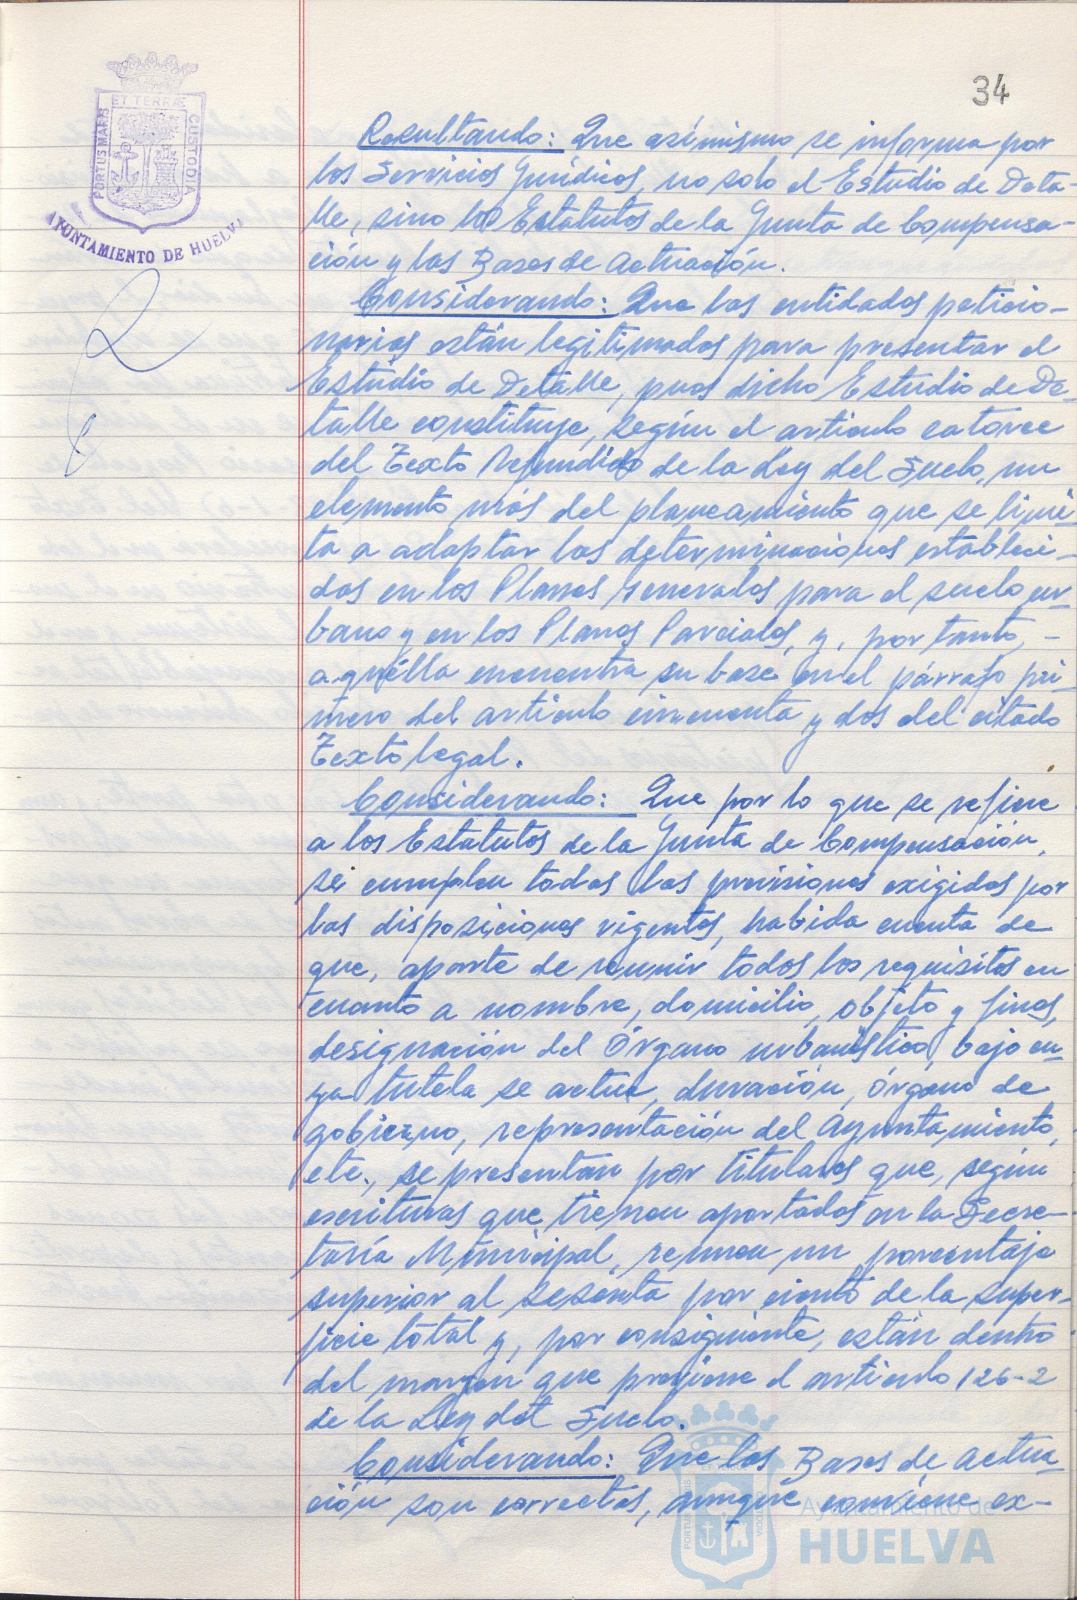 34
ET TERRÆ
PORTUS MARIS
CUSTODIA
AYUNTAMIENTO DE HUELVA
Resultando: Que asímismo se informa por
los Servicios Jurídicos, no solo el Estudio de Deta-
lle, sino los Estatutos de la Junta de Compensa-
ción y las Bases de Actuación.
Considerando: Que las entidades peticio-
narias están legitimadas para presentar el
Estudio de Detalle, pues dicho Estudio de De-
talle constituye, según el artículo catorce
del Texto Refundido de la Ley del Suelo, un
elemento más del planeamiento que se limi-
ta a adaptar las determinaciones estableci-
das en los Planes Generales para el suelo ur-
bano y en los Planes Parciales, y, por tanto, -
aquélla encuentra su base en el párrafo pri-
mero del artículo cincuenta y dos del citado
Texto legal.
Considerando: Que por lo que se refiere
a los Estatutos de la Junta de Compensación,
se cumplen todas las previsiones exigidas por
las disposiciones vigentes, habida cuenta de
que, aparte de reunir todos los requisitos en
cuanto a nombre, domicilio, objeto y fines,
designación del Órgano urbanístico, bajo cu-
ya tutela se actua, duración, órgano de
gobierno, representación del Ayuntamiento,
etc., se presentan por titulares que, según
escrituras que tienen aportadas en la Secre-
taría Municipal, reunen un porcentaje
superior al sesenta por ciento de la super-
ficie total y, por consiguiente, están dentro
del margen que previene el artículo 126-2
de la Ley del Suelo.
Considerando: Que las Bases de Actua-
ción son correctas, aunque conviene ex-
Ayuntamiento de
HUELVA